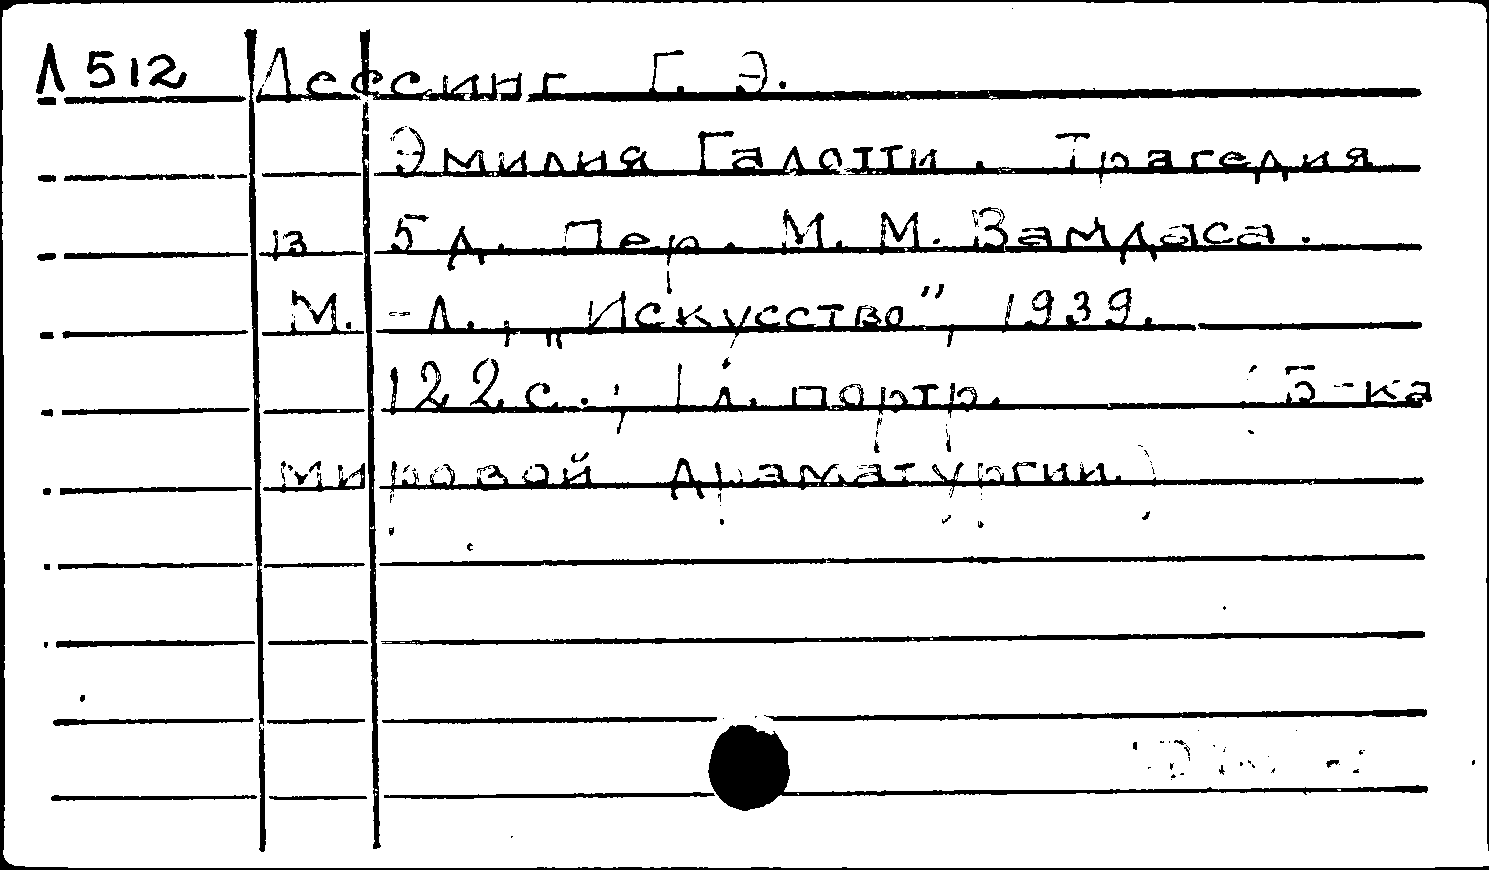 Л 512 Лессинг Г. Э.
Эмилия Галотти. Трагедия
в 5 д. Пер. М. М. Замдаса.
М. -Л., „Искусство", 1939.
122 с.; 1 л. портр. (Б-ка
мировой драматургии.)